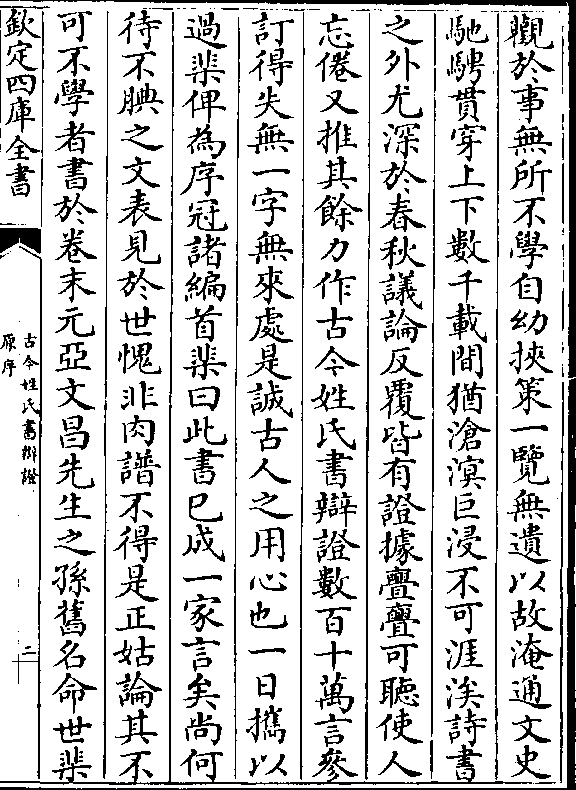 觀於事無所不學自幼挾策一覽無遺以故淹通文史
馳騁貫穿上下數千載間猶滄溟巨浸不可涯涘詩書
之外尤深於春秋議論反覆皆有證據亹亹可聽使人
忘倦又推其餘力作古今姓氏書辯證數百十萬言參
訂得失無一字無來處是誠古人之用心也一日攜以
過棐俾為序冠諸編首棐曰此書已成一家言矣尚何
待不腆之文表見於世愧非肉譜不得是正姑論其不
可不學者書於卷末元亞文昌先生之孫舊名命世棐
欽定四庫全書
古今姓氏書辯證
原序
二